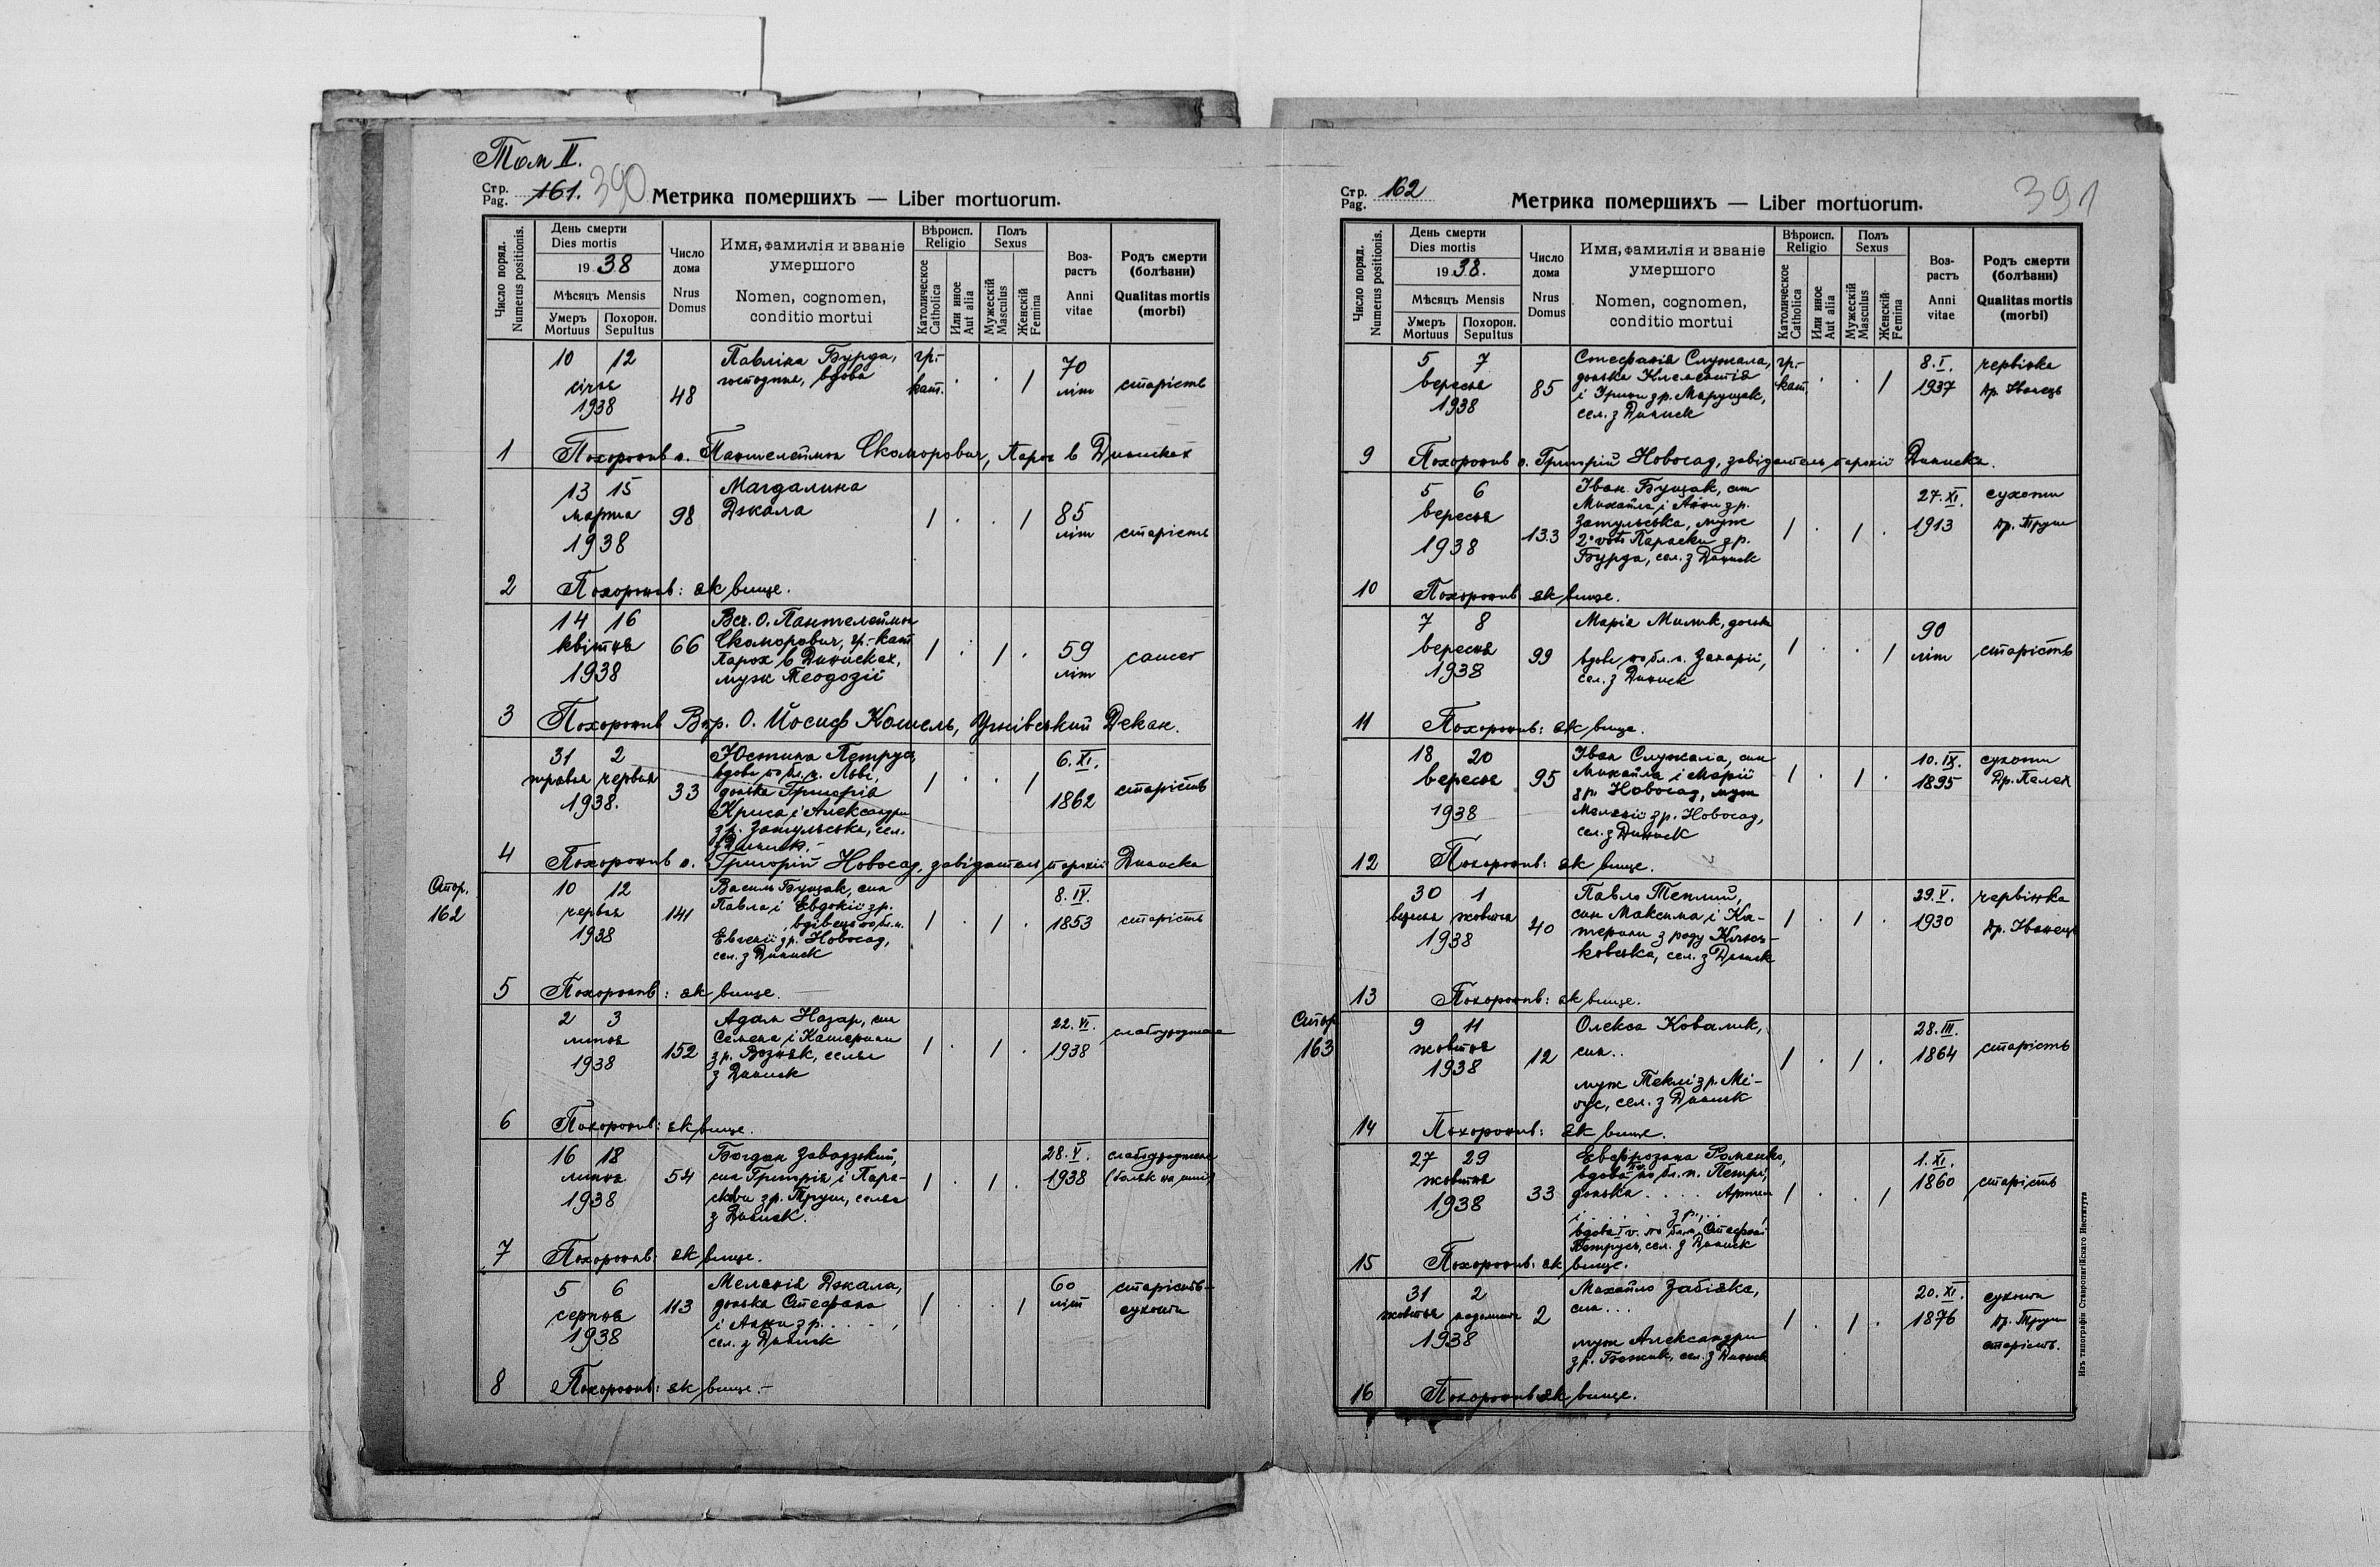 Том II.
Стр. Pag. 161. 390
Метрика померших ъ — Liber mortuorum.
Число поряд. Numerus positionis.
День смерти Dies mortis
19 38
Мѣсяцъ Mensis
Умеръ Mortuus
Похорон. Sepultus
Число дома Nrus Domus
Имя, фамилія и званіе умершого
Nomen, cognomen, conditio mortui
Вѣроисп. Religio
Католическое Catholica
Или иное Aut alia
Полъ Sexus
Мужескій Masculus
Женскій Femina
Возрастъ Anni vitae
Родъ смерти (болѣзни) Qualitas mortis (morbi)
10 12 січня 1938
48
Павліна Бурда,
господиня, вдова
гр.-кат. . . 1
70 літ
старість
1 Похоронив о. Пантелеймон Скоморович, Парох в Динисках
13 15 марта 1938
98
Магдалина
Джала
1 . . 1
85 літ
старість
2 Похоронив: як вище.
14 16 квітня 1938
66
Всч. О. Пантелеймон
Скоморович, гр.-кат.
Парох в Динисках,
муж Теодозії
1 . 1 .
59 літ
cancer
3 Похоронив Впр. О. Йосиф Кошель, Угнівський Декан.
31 2 травня червня 1938.
33
Юстина Петрусь,
вдова по бл. п. Льві,
донька Григорія
Криса і Александри
з р. Затульська, сел.
з Диниск.-
1 . . 1
6.XI. 1862
старість
4 Похоронив о. Григорій Новосад, завідатель парохії Диниска
Стор. 162
10 12 червня 1938
141
Василь Бущак, син
Павла і Евдокії з р.
, вдівець по бл. п.
Евгенії з р. Новосад,
сел. з Диниск
1 . 1 .
8.IV. 1853
старість
5 Похоронив: як вище.
2 3 липня 1938
152
Адам Назар, син
Семена і Катерини
з р. Возняк, селян
з Диниск
1 . 1 .
22.VI. 1938
6 Похоронив: як вище.
16 18 липня 1938
54
Богдан Завадзкий,
син Григорія і Пара-
скеви з р. Труш, селян
з Диниск.
1 . 1 .
28.V. 1938
7 Похоронив: як вище.
5 6 серпня 1938
113
Меланія Джала,
донька Стефана
і Анни з р. . . . ,
сел. з Диниск
1 . . 1
60 літ
старість -
сухоти
8 Похоронив: як вище.-
Стр. Pag. 162
391
Метрика померших ъ — Liber mortuorum.
Число поряд. Numerus positionis.
День смерти Dies mortis
19 38.
Мѣсяцъ Mensis
Умеръ Mortuus
Похорон. Sepultus
Число дома Nrus Domus
Имя, фамилія и званіе умершого
Nomen, cognomen, conditio mortui
Вѣроисп. Religio
Католическое Catholica
Или иное Aut alia
Полъ Sexus
Мужескій Masculus
Женскій Femina
Возрастъ Anni vitae
Родъ смерти (болѣзни) Qualitas mortis (morbi)
5 7 вересня 1938
85
Стефанія Служала,
донька Климентія
і Ірини з р. Марущак,
сел. з Диниск
гр.-кат. . . 1
8.I. 1937
червінка
др. Іванець
9 Похоронив о. Григорій Новосад, завідатель парохії Диниска.
5 6 вересня 1938
133
Іван Бущак, син
Михайла і Анни з р.
Затульська, муж
2° voti Параски з р.
Бурда, сел. з Диниск
1 . 1 .
27.XI. 1913
сухоти
др. Труш
10 Похоронив як вище.
7 8 вересня 1938
99
Марія Милик, донька
вдова по бл. п. Захарії,
сел. з Диниск
1 . . 1
90 літ
старість
11 Похоронив: як вище.
18 20 вересня 1938
95
Іван Служала, син
Михайла і Марії
з р. Новосад, муж
Меланії з р. Новосад,
сел. з Диниск
1 . 1 .
10.IX. 1895
сухоти
Др. Пелех
12 Похоронив: як вище.
30 1 вересня жовтня 1938
40
Павло Теплий,
син Максима і Ка-
терини з роду Клюс-
ковська, сел. з Диниск
1 . 1 .
29.V. 1930
червінка
др. Іванець
13 Похоронив: як вище.
Стор. 163
9 11 жовтня 1938
12
Олекса Ковалик,
син..
муж Теклі з р. Мі-
гус, сел. з Диниск
1 . 1 .
28.III. 1864
старість
14 Похоронив: як вище.
27 29 жовтня 1938
33
Евфрозина Романко,
вдова по бл. п. Петрі,
донька . . . .
і . . . . з р. . . ,
вдова I v. по бл. п. Стефані
Петрусь, сел. з Диниск
1 . . 1
1.XI. 1860
старість
15 Похоронив: як вище.
31 2 жовтня падолиста 1938
2
Михайло Забіяка,
син . . .
муж Александри
з р. Божик, сел. з Диниск
1 . 1 .
20.XI. 1876
сухоти
др. Труш
старість.
16 Похоронив як вище.
Изъ типографіи Ставропигійскаго Института